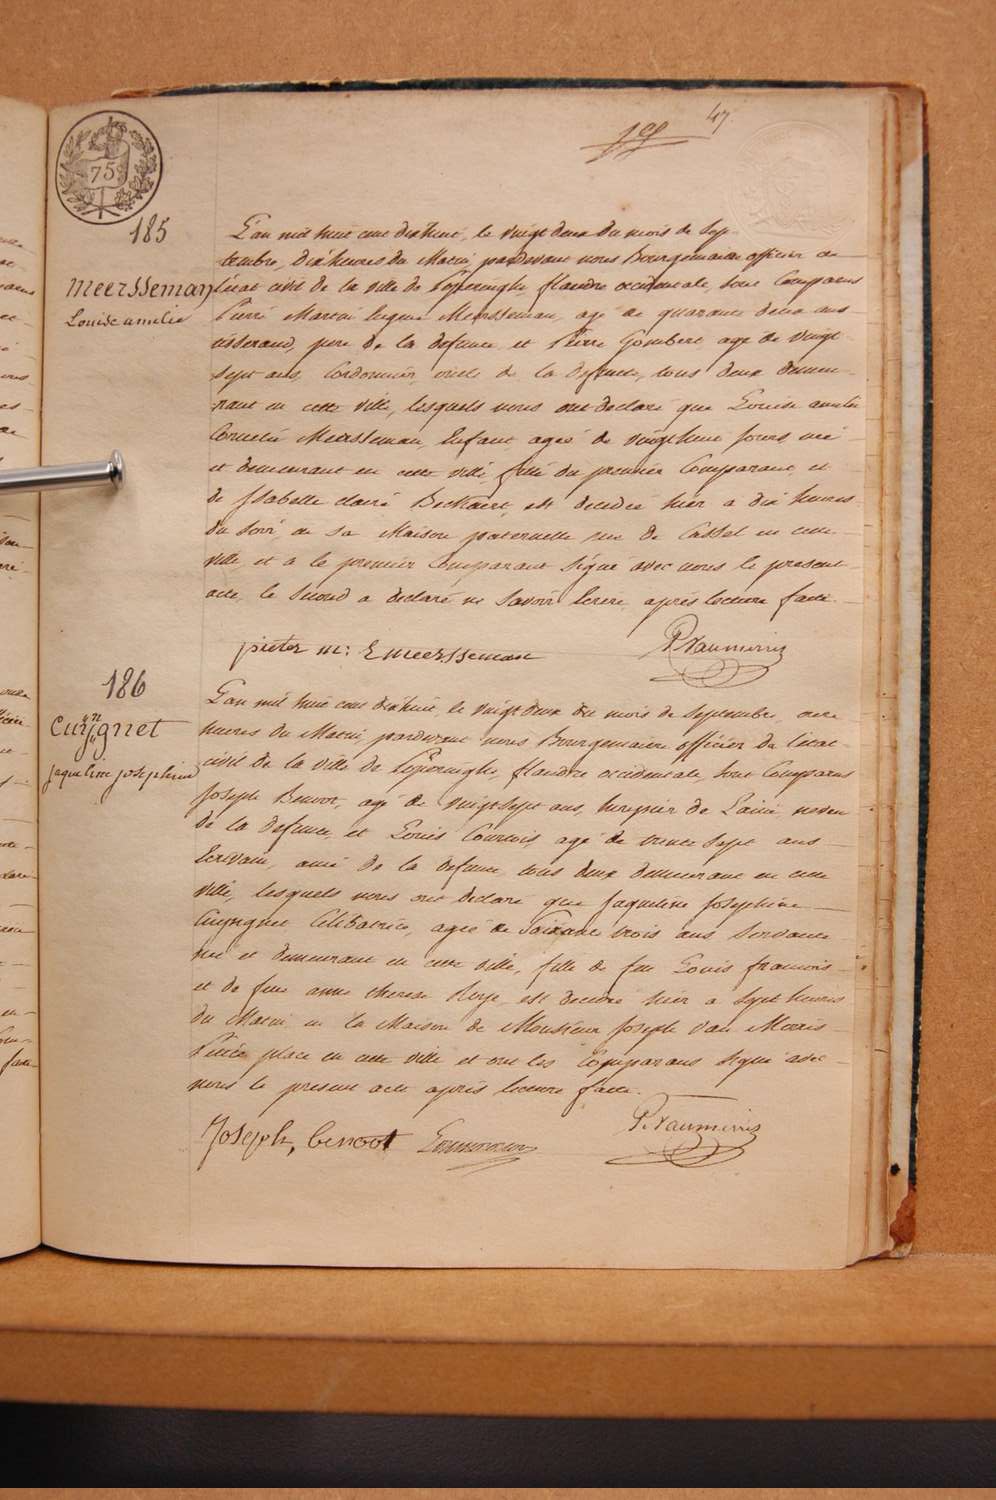 47
75
185
Meersseman
Louise amelie
L'an mil huit cent dixhuit, le vingt deux du mois de Sep-
tembre, dix heures du Matin, pardevant nous Bourgemaire officier de
l'état civil de la ville de Poperinghe, flandre occidentale, sont Comparus
Pierre Martin Eugene Meersseman, agé de quarante deux ans
tisserand, pere de la defunte et Pierre Gombert agé de vingt
sept ans, Cordonnier, oncle de la defunte, tous deux demeu-
rant en cette ville, lesquels nous ont declaré que Louise amelie
Cornelie Meersseman, Enfant, ageé de vingt huit jours, neé
et demeurant en cette ville, fille du premier Comparant, et
de Isabelle claire Beckaert, est decedeé hier a dix heures
du Soir, en sa Maison paternelle rue de Cassel en cette
ville, et à le premier Comparant Signé avec nous le present
acte, le Second a declaré ne Savoir Ecrire, aprés lecture faite.
pieter m: E meersseman
186
Cuyngnet
jaqueline josephine
L'an mil huit cent dixhuit le vingt deux du mois de Septembre, onze
heures du Matin, pardevant nous Bourgemaire officier de l'état
civil de la ville de Poperinghe, flandre occidentale, Sont Comparus
Joseph Benoot, agé de vingt Sept ans, de Laine, neveu
de la defunte et Louis Courtois, agé de trente Sept ans
Ecrivain, ami de la defunte, tous deux demeurant en cette
ville, lesquels nous ont declaré que Jaqueline Josephine
Cuyngnet Célibatrice, ageé de Soixante trois ans Servante
neé et demeurant en cette ville, fille de feu Louis francois
et de feue anne therese, est decedeé hier a Sept heures
du Matin en la Maison de Monsieur Joseph Van Merris
Petite place en cette ville et ont les Comparans Signé avec
nous le present acte aprés lecture faite.
Joseph, benoot